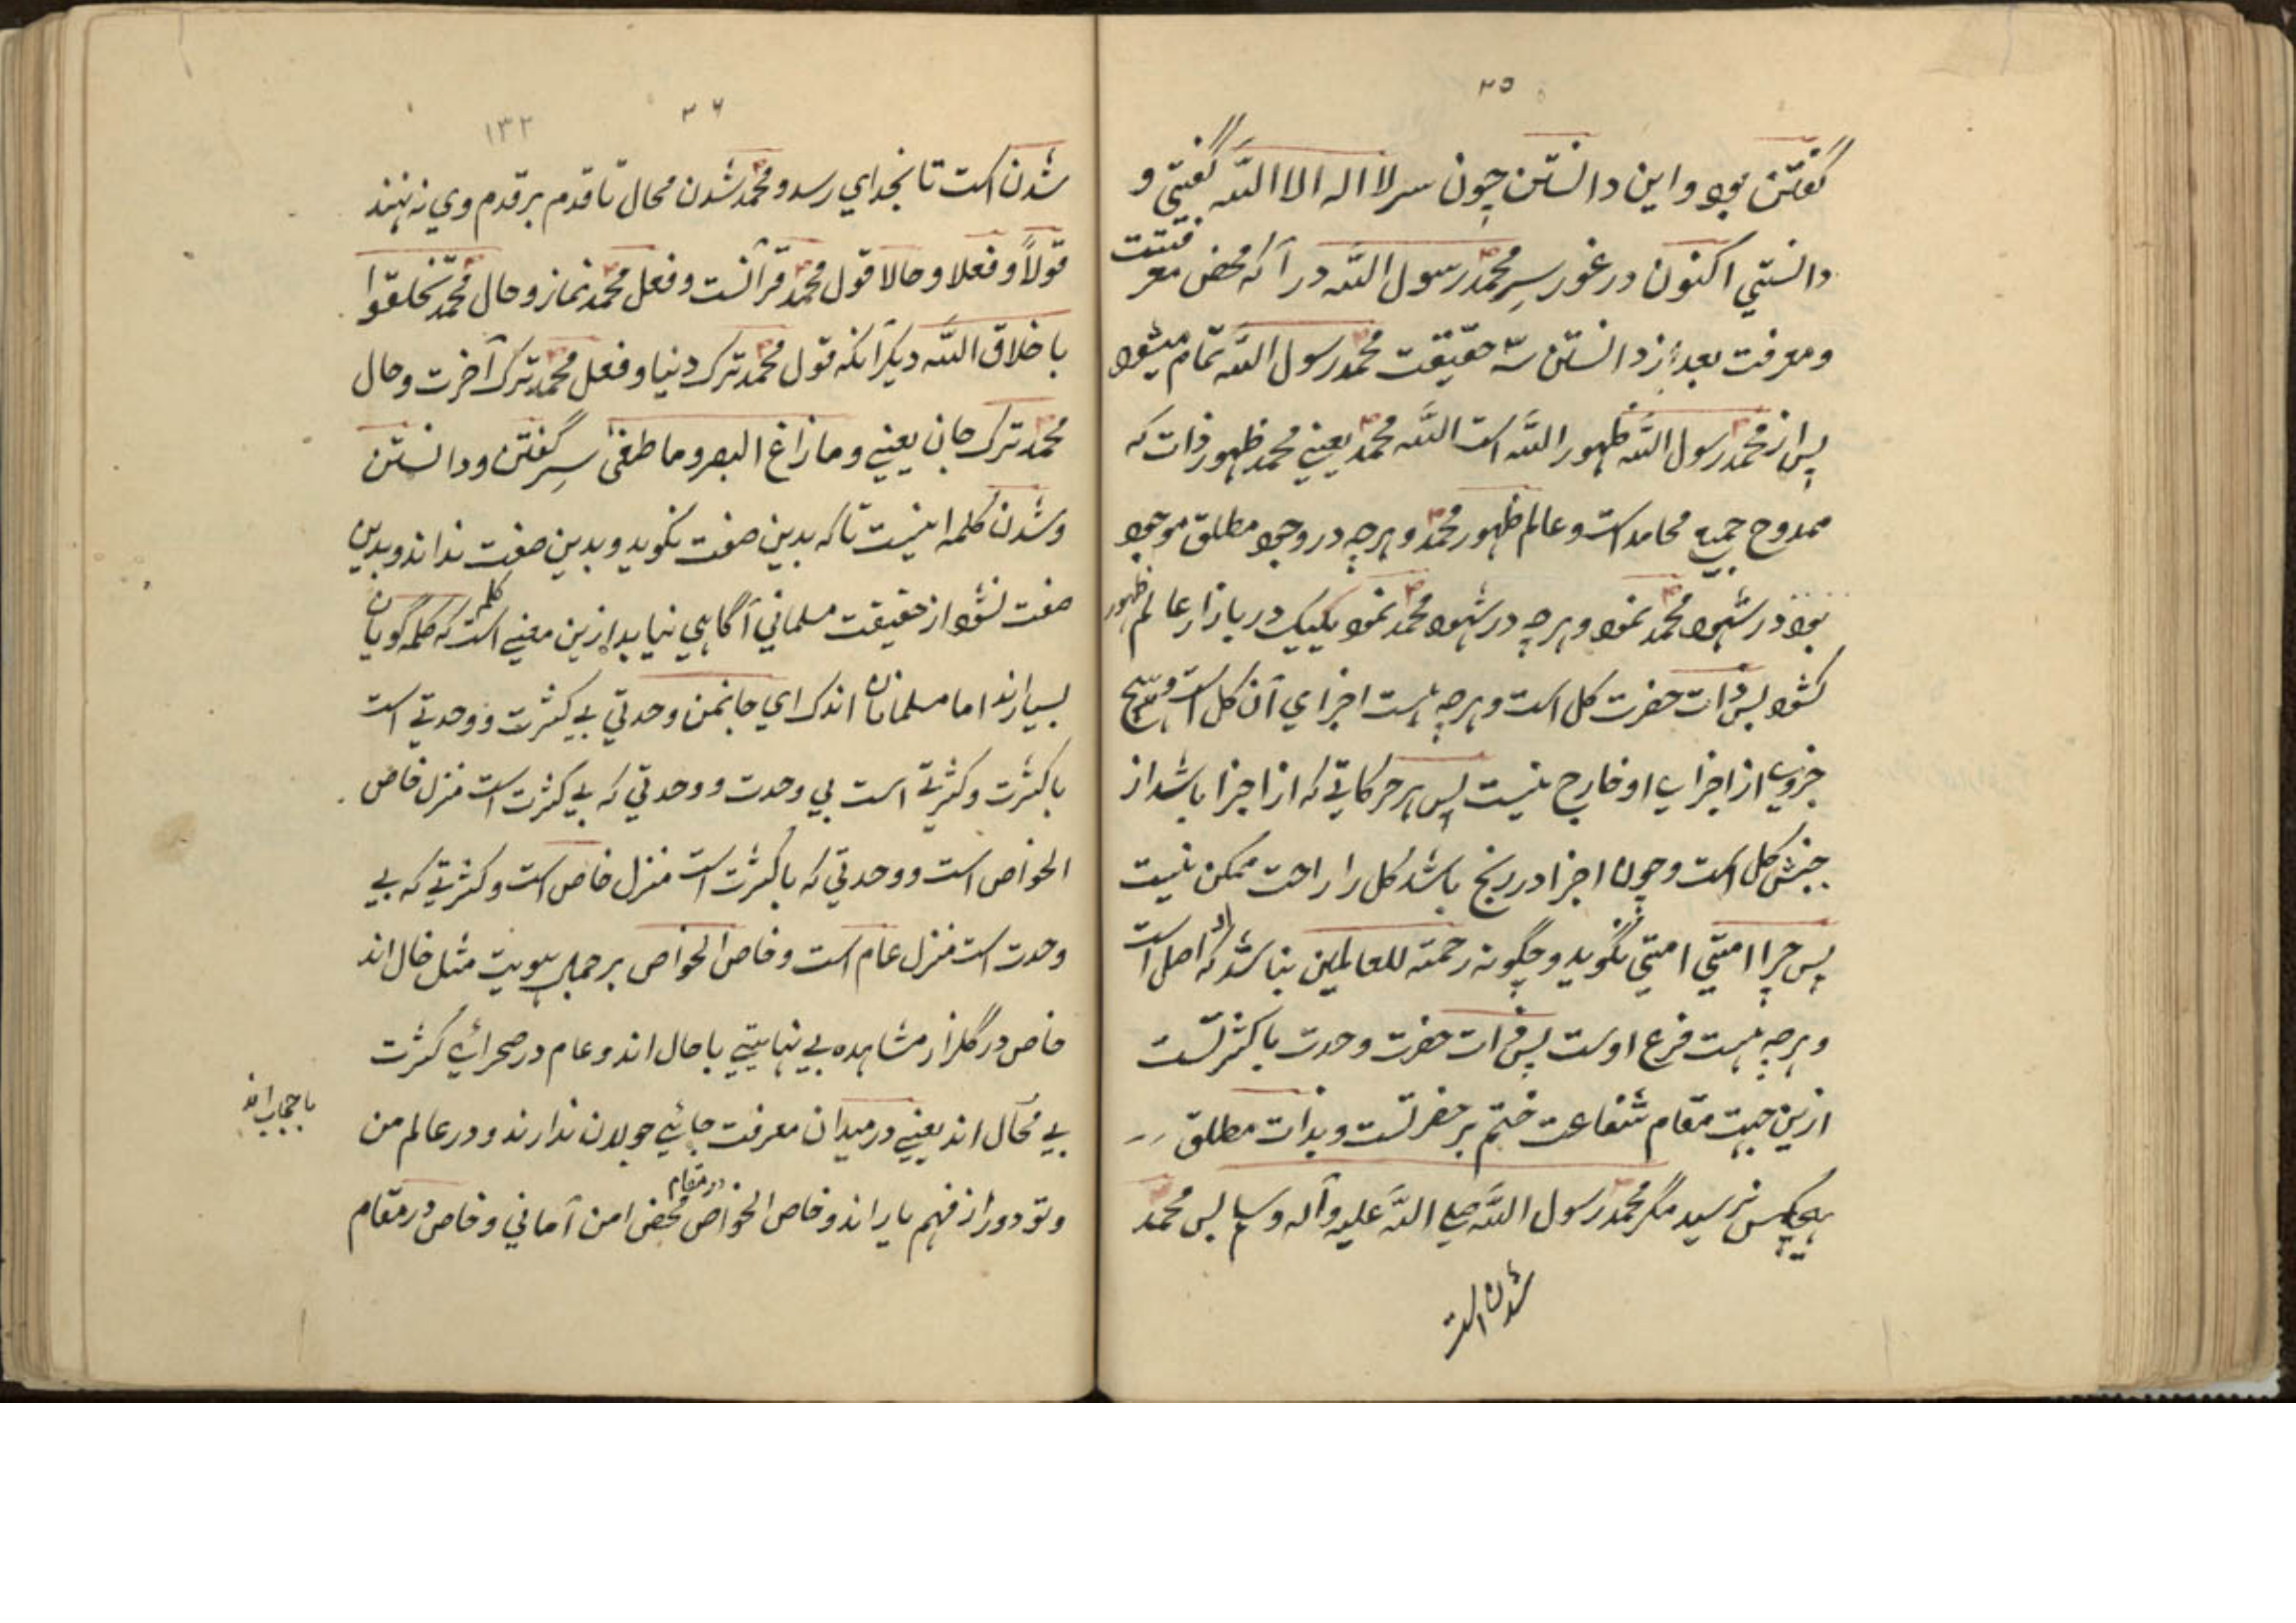 ۳۵
گفتن بود و این دانستن چون سر لا اله الا الله گفتی و
دانستی اکنون در غور سِر محمد رسول الله در آ که محض معرفتست
و معرفت بعد از دانستن سرّ حقیقت محمد رسول الله تمام میشود
پس از محمد رسول الله ظهور الله است الله محمد یعنی محمد ظهور ذات که
ممدوح جمیع محامد است و عالم ظهور محمد و هرچه در وجود مطلق موجود
بود در شهود محمد نمود و هرچه در شهود محمد نمود یکیک در بازار عالم ظهور
کشود پس ذات حضرت کل است و هرچه هست اجزای آن کل است و هیچ
جزوی از اجزای او خارج نیست پس هر حرکاتی که از اجزا باشد از
جنبش کل است و چون اجزا در رنج باشد کل را راحت ممکن نیست
پس چرا امتی امتی نگوید و چگونه رحمة للعالمین نباشد که او اصل است
و هرچه هست فرع اوست پس ذات حضرت وحدت با کثرتست
ازین جهت مقام شفاعت ختم بر حضرتست و بذات مطلق
هیچکس نرسید مگر محمد رسول الله صلی الله علیه وآله وسلم پس محمد
شدن است
۳۶
۱۳۲
شدن است تا بخدای رسد و محمد شدن محال تا قدم بر قدم وی نه نهند
قولاً و فعلا و حالا قول محمد قرآنست و فعل محمد نماز و حال محمد تخلقوا
باخلاق الله دیگر آنکه قول محمد ترک دنیا و فعل محمد ترک آخرت و حال
محمد ترک جان یعنی و ما زاغ البصر وما طغی سِر گفتن و دانستن
و شدن کلمه اینست تا که بدین صفت نگوید و بدین صفت نداند و بدین
صفت نشود از حقیقت مسلمانی آگاهی نیابد ازین معنی است که کلمه گویان
بسیارند اما مسلمانان اندک ای جانمن وحدتی بی کثرت و وحدتی است
با کثرت و کثرتی است بی وحدت و وحدتی که بی کثرت است منزل خاص
الخواص است و وحدتی که با کثرت است منزل خاص است و کثرتی که بی
وحدت است منزل عام است و خاص الخواص بر جمال هویت مثل خال اند
خاص در گلزار مشاهده بی نهایتی با حال اند و عام در صحرائی کثرت
بی مجال اند یعنی در میدان معرفت جائی جولان ندارند و در عالم من
با حجاب اند
و تو دور از فهم یار اند و خاص الخواص در مقام محض امن آمانی و خاص در مقام